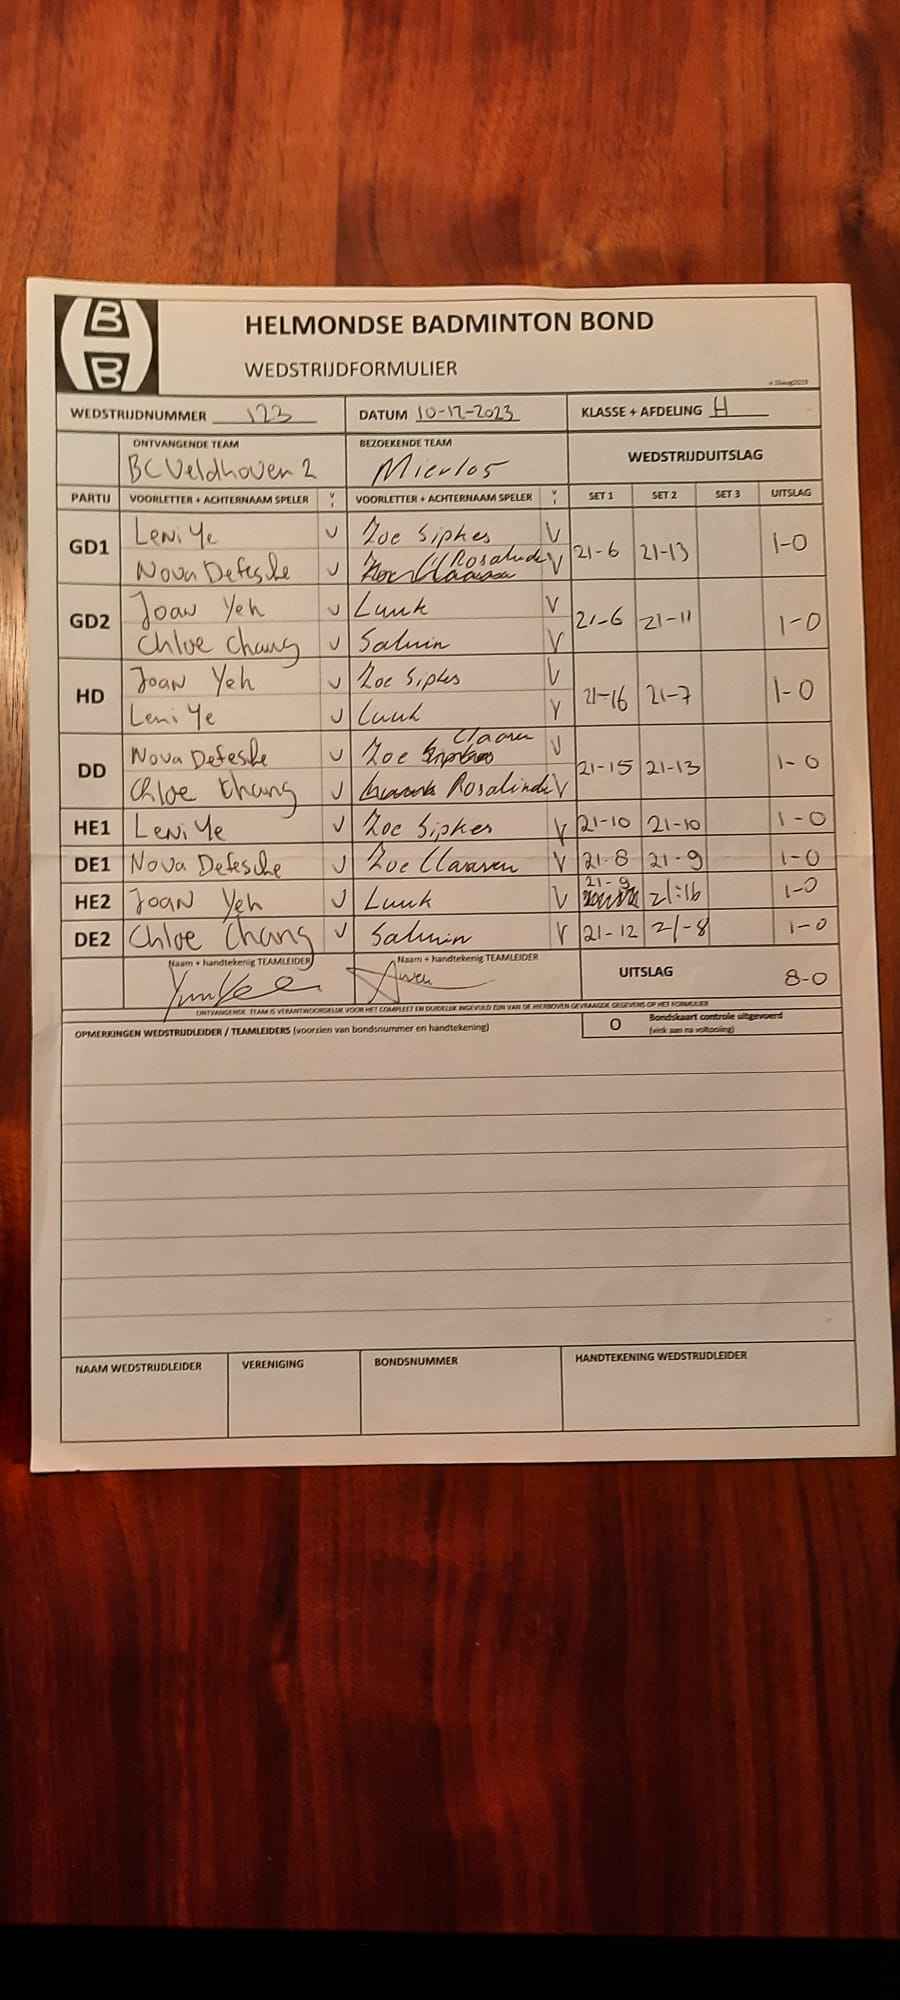 B
B
HELMONDSE BADMINTON BOND
WEDSTRIJDFORMULIER
WEDSTRIJDNUMMER 123 DATUM 10-12-2023 KLASSE + AFDELING H
ONTVANGENDE TEAM BEZOEKENDE TEAM WEDSTRIJDUITSLAG
BC Veldhoven 2 Mierlo 5
PARTIJ VOORLETTER + ACHTERNAAM SPELER V VOORLETTER + ACHTERNAAM SPELER V SET 1 SET 2 SET 3 UITSLAG
GD1 Leni Ye V Zoe Sipkes V 21-6 21-13 1-0
Nova Defesche V Rosalinde V
GD2 Joan Yeh V Luuk V 21-6 21-11 1-0
Chloe Chang V V
HD Joan Yeh V Zoe Sipkes V 21-16 21-7 1-0
Leni Ye V Luuk V
DD Nova Defesche V Zoe V 21-15 21-13 1-0
Chloe Chang V Rosalinde V
HE1 Leni Ye V Zoe Sipkes V 21-10 21-10 1-0
DE1 Nova Defesche V Zoe V 21-8 21-9 1-0
HE2 Joan Yeh V Luuk V 21-9 21:16 1-0
DE2 Chloe Chang V V 21-12 21-8 1-0
Naam + handtekenig TEAMLEIDER Naam + handtekenig TEAMLEIDER UITSLAG 8-0
ONTVANGENDE TEAM IS VERANTWOORDELIJK VOOR HET COMPLEET EN DUIDELIJK INGEVULD ZIJN VAN DE HIERBOVEN GEVRAAGDE GEGEVENS OP HET FORMULIER
OPMERKINGEN WEDSTRIJDLEIDER / TEAMLEIDERS (voorzien van bondsnummer en handtekening) O Bondskaart controle uitgevoerd
(vink aan na voltooiing)
NAAM WEDSTRIJDLEIDER VERENIGING BONDSNUMMER HANDTEKENING WEDSTRIJDLEIDER